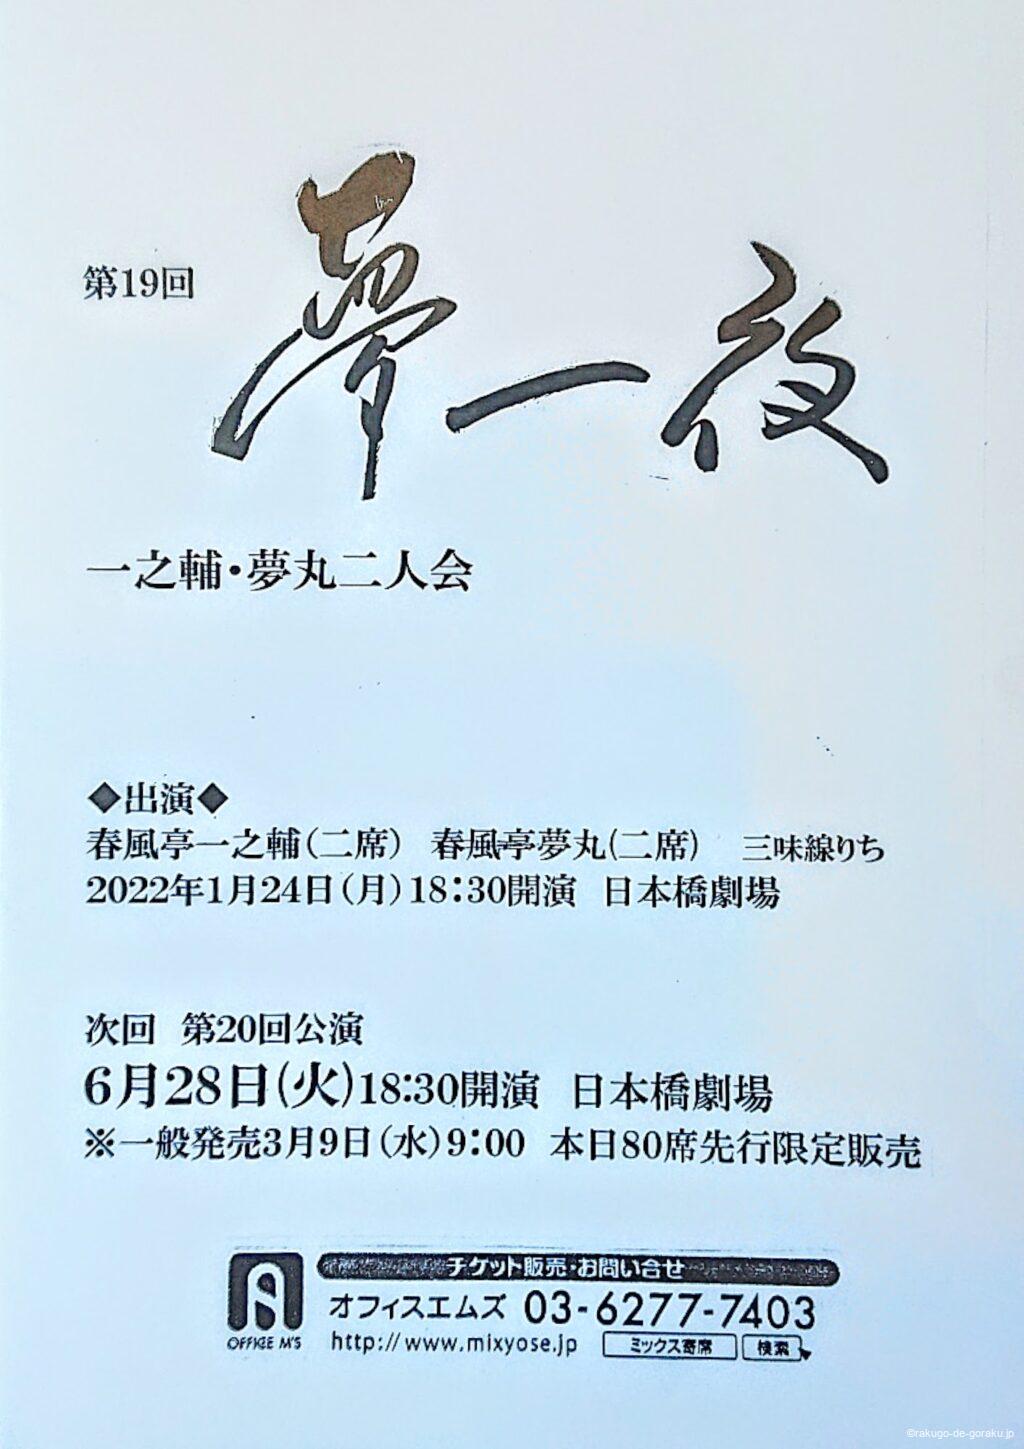 第19回
夢一夜
一之輔・夢丸二人会
◆出演◆
春風亭一之輔(二席) 春風亭夢丸(二席) 三味線りち
2022年1月24日(月)18:30開演 日本橋劇場
次回 第20回公演
6月28日(火)18:30開演 日本橋劇場
※一般発売3月9日(水)9:00 本日80席先行限定販売
チケット販売・お問い合せ
オフィスエムズ 03-6277-7403
OFFICE M'S
http://www.mixyose.jp ミックス寄席 検索
©rakugo-de-goraku.jp